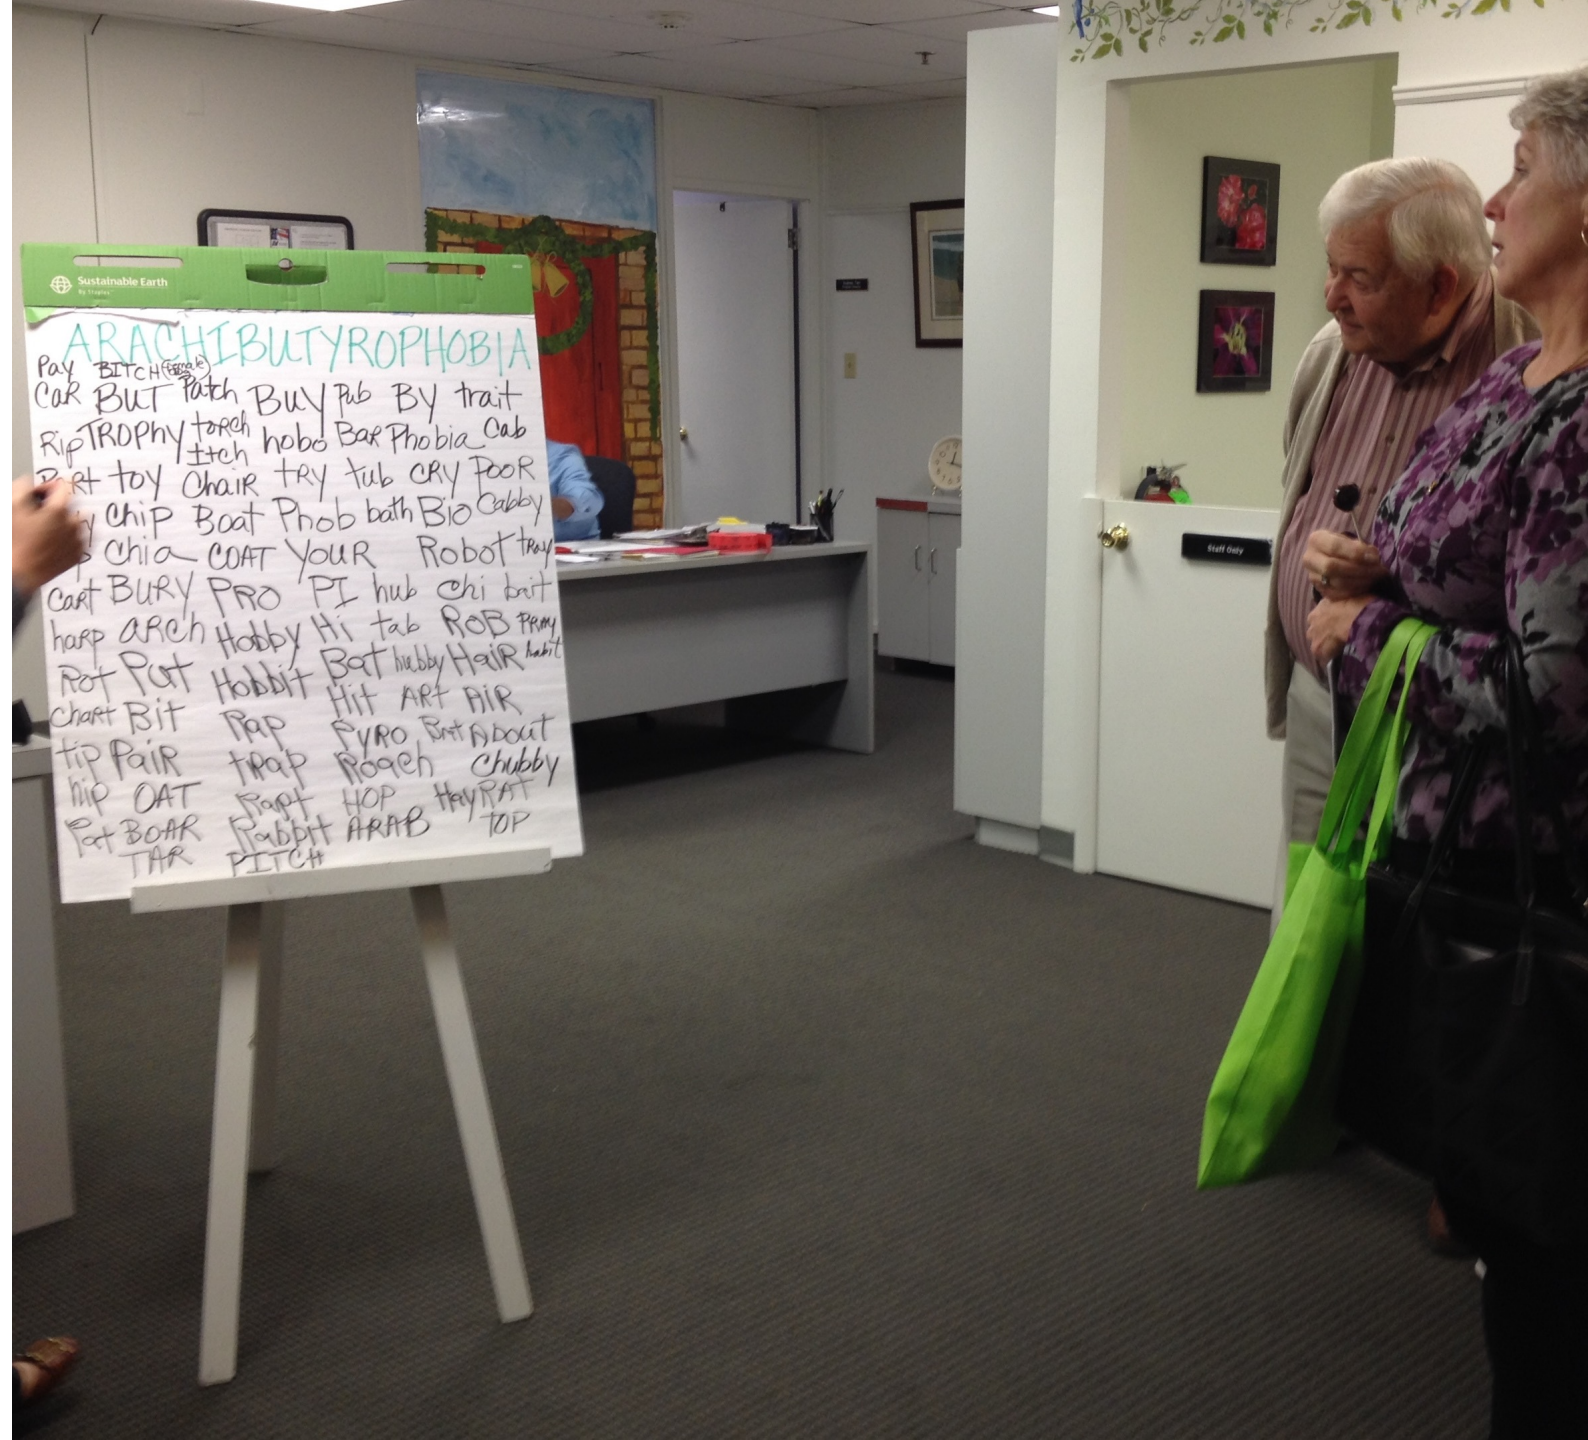 Sustainable Earth
By Staples
ARACHIBUTYROPHOBIA
Pay BITCH (female)
CAR BUT Patch BUY Pub By trait
Rip TROPHY torch hobo BAR Phobia Cab
Itch
Part toy ChAIR TRY tub CRY POOR
Chip Boat Phob bath BIO Cabby
Chia COAT YOUR Robot tray
Cart BURY PRO PI hub Chi bait
harp ARCH Hobby Hi tab ROB PRAY
Rot Put Hobbit Bat hubby HAIR habit
Chart BIT Rap Hit ART AIR
tip PAIR tRAP PYRO Brat About
hip OAT Rapt Roach Chubby
Pat BOAR Rabbit HOP Hay RAT
TAR PITCH ARAB TOP
Staff Only